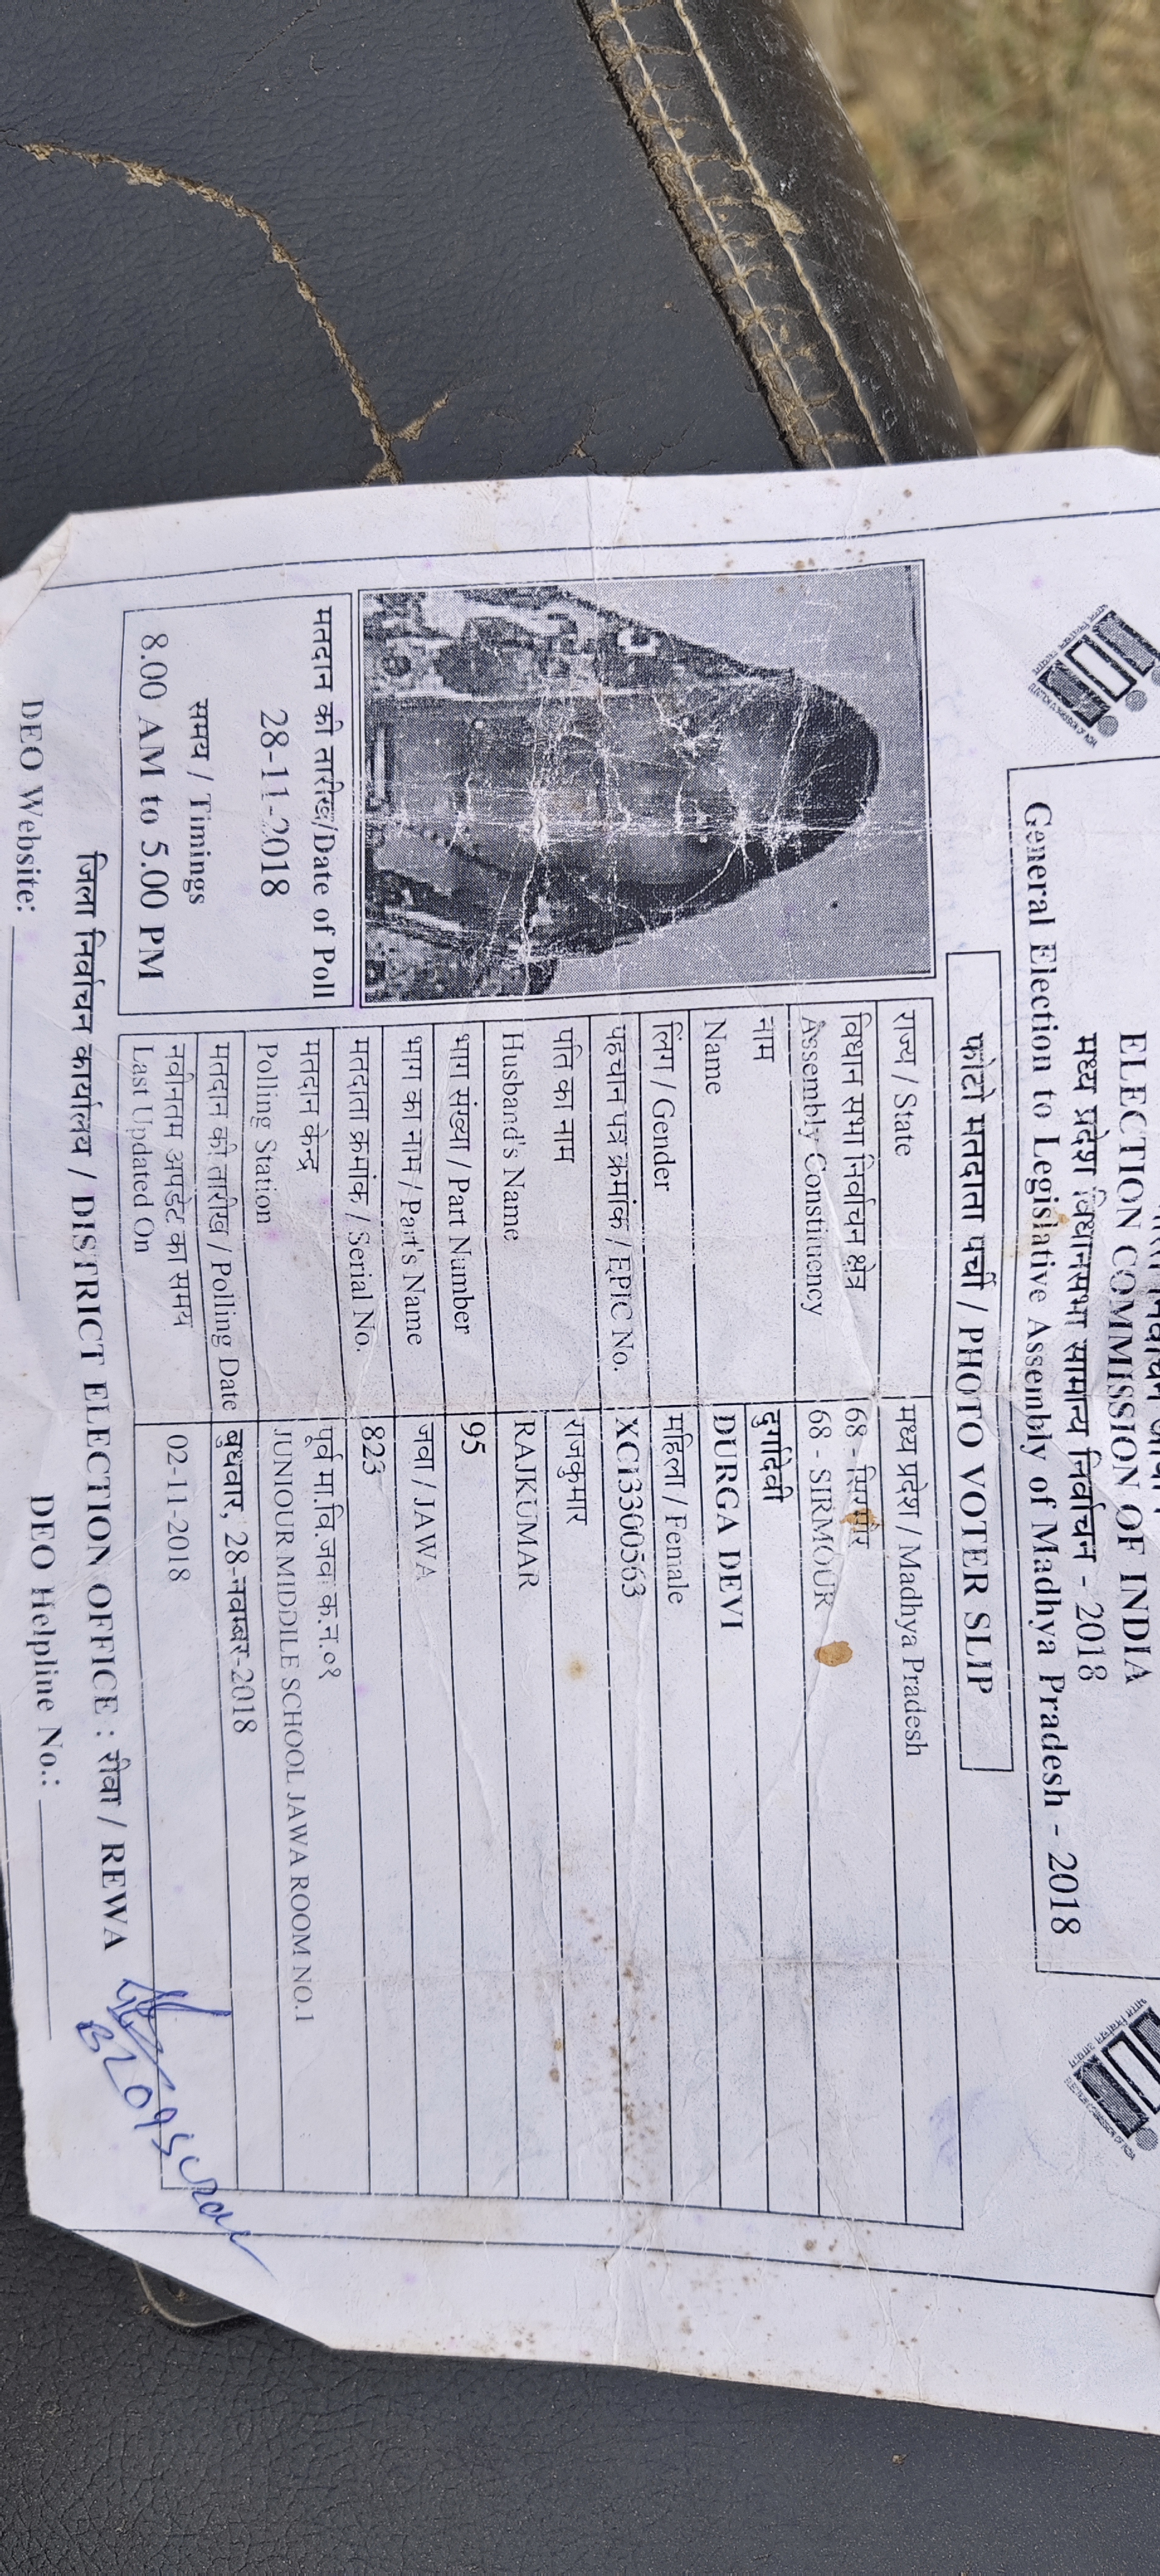 ELECTION COMMISSION OF INDIA
मध्य प्रदेश विधानसभा सामान्य निर्वाचन - 2018
General Election to Legislative Assembly of Madhya Pradesh - 2018
फोटो मतदाता पर्ची / PHOTO VOTER SLIP
राज्य / State मध्य प्रदेश / Madhya Pradesh
विधान सभा निर्वाचन क्षेत्र 68 - सिरमौर
Assembly Constituency 68 - SIRMOUR
नाम दुर्गादेवी
Name DURGA DEVI
लिंग / Gender महिला / Female
पहचान पत्र क्रमांक / EPIC No. XCI3300563
पति का नाम राजकुमार
Husband's Name RAJKUMAR
भाग संख्या / Part Number 95
भाग का नाम / Part's Name जवा / JAWA
मतदाता क्रमांक / Serial No. 823
मतदान केन्द्र पूर्व मा.वि.जवा क.न.०१
Polling Station JUNIOUR MIDDILE SCHOOL JAWA ROOM NO.1
मतदान की तारीख / Polling Date बुधवार, 28-नवम्बर-2018
नवीनतम अपडेट का समय 02-11-2018
Last Updated On
मतदान की तारीख/Date of Poll
28-11-2018
समय / Timings
8.00 AM to 5.00 PM
जिला निर्वाचन कार्यालय / DISTRICT ELECTION OFFICE : रीवा / REWA
DEO Website: DEO Helpline No.: